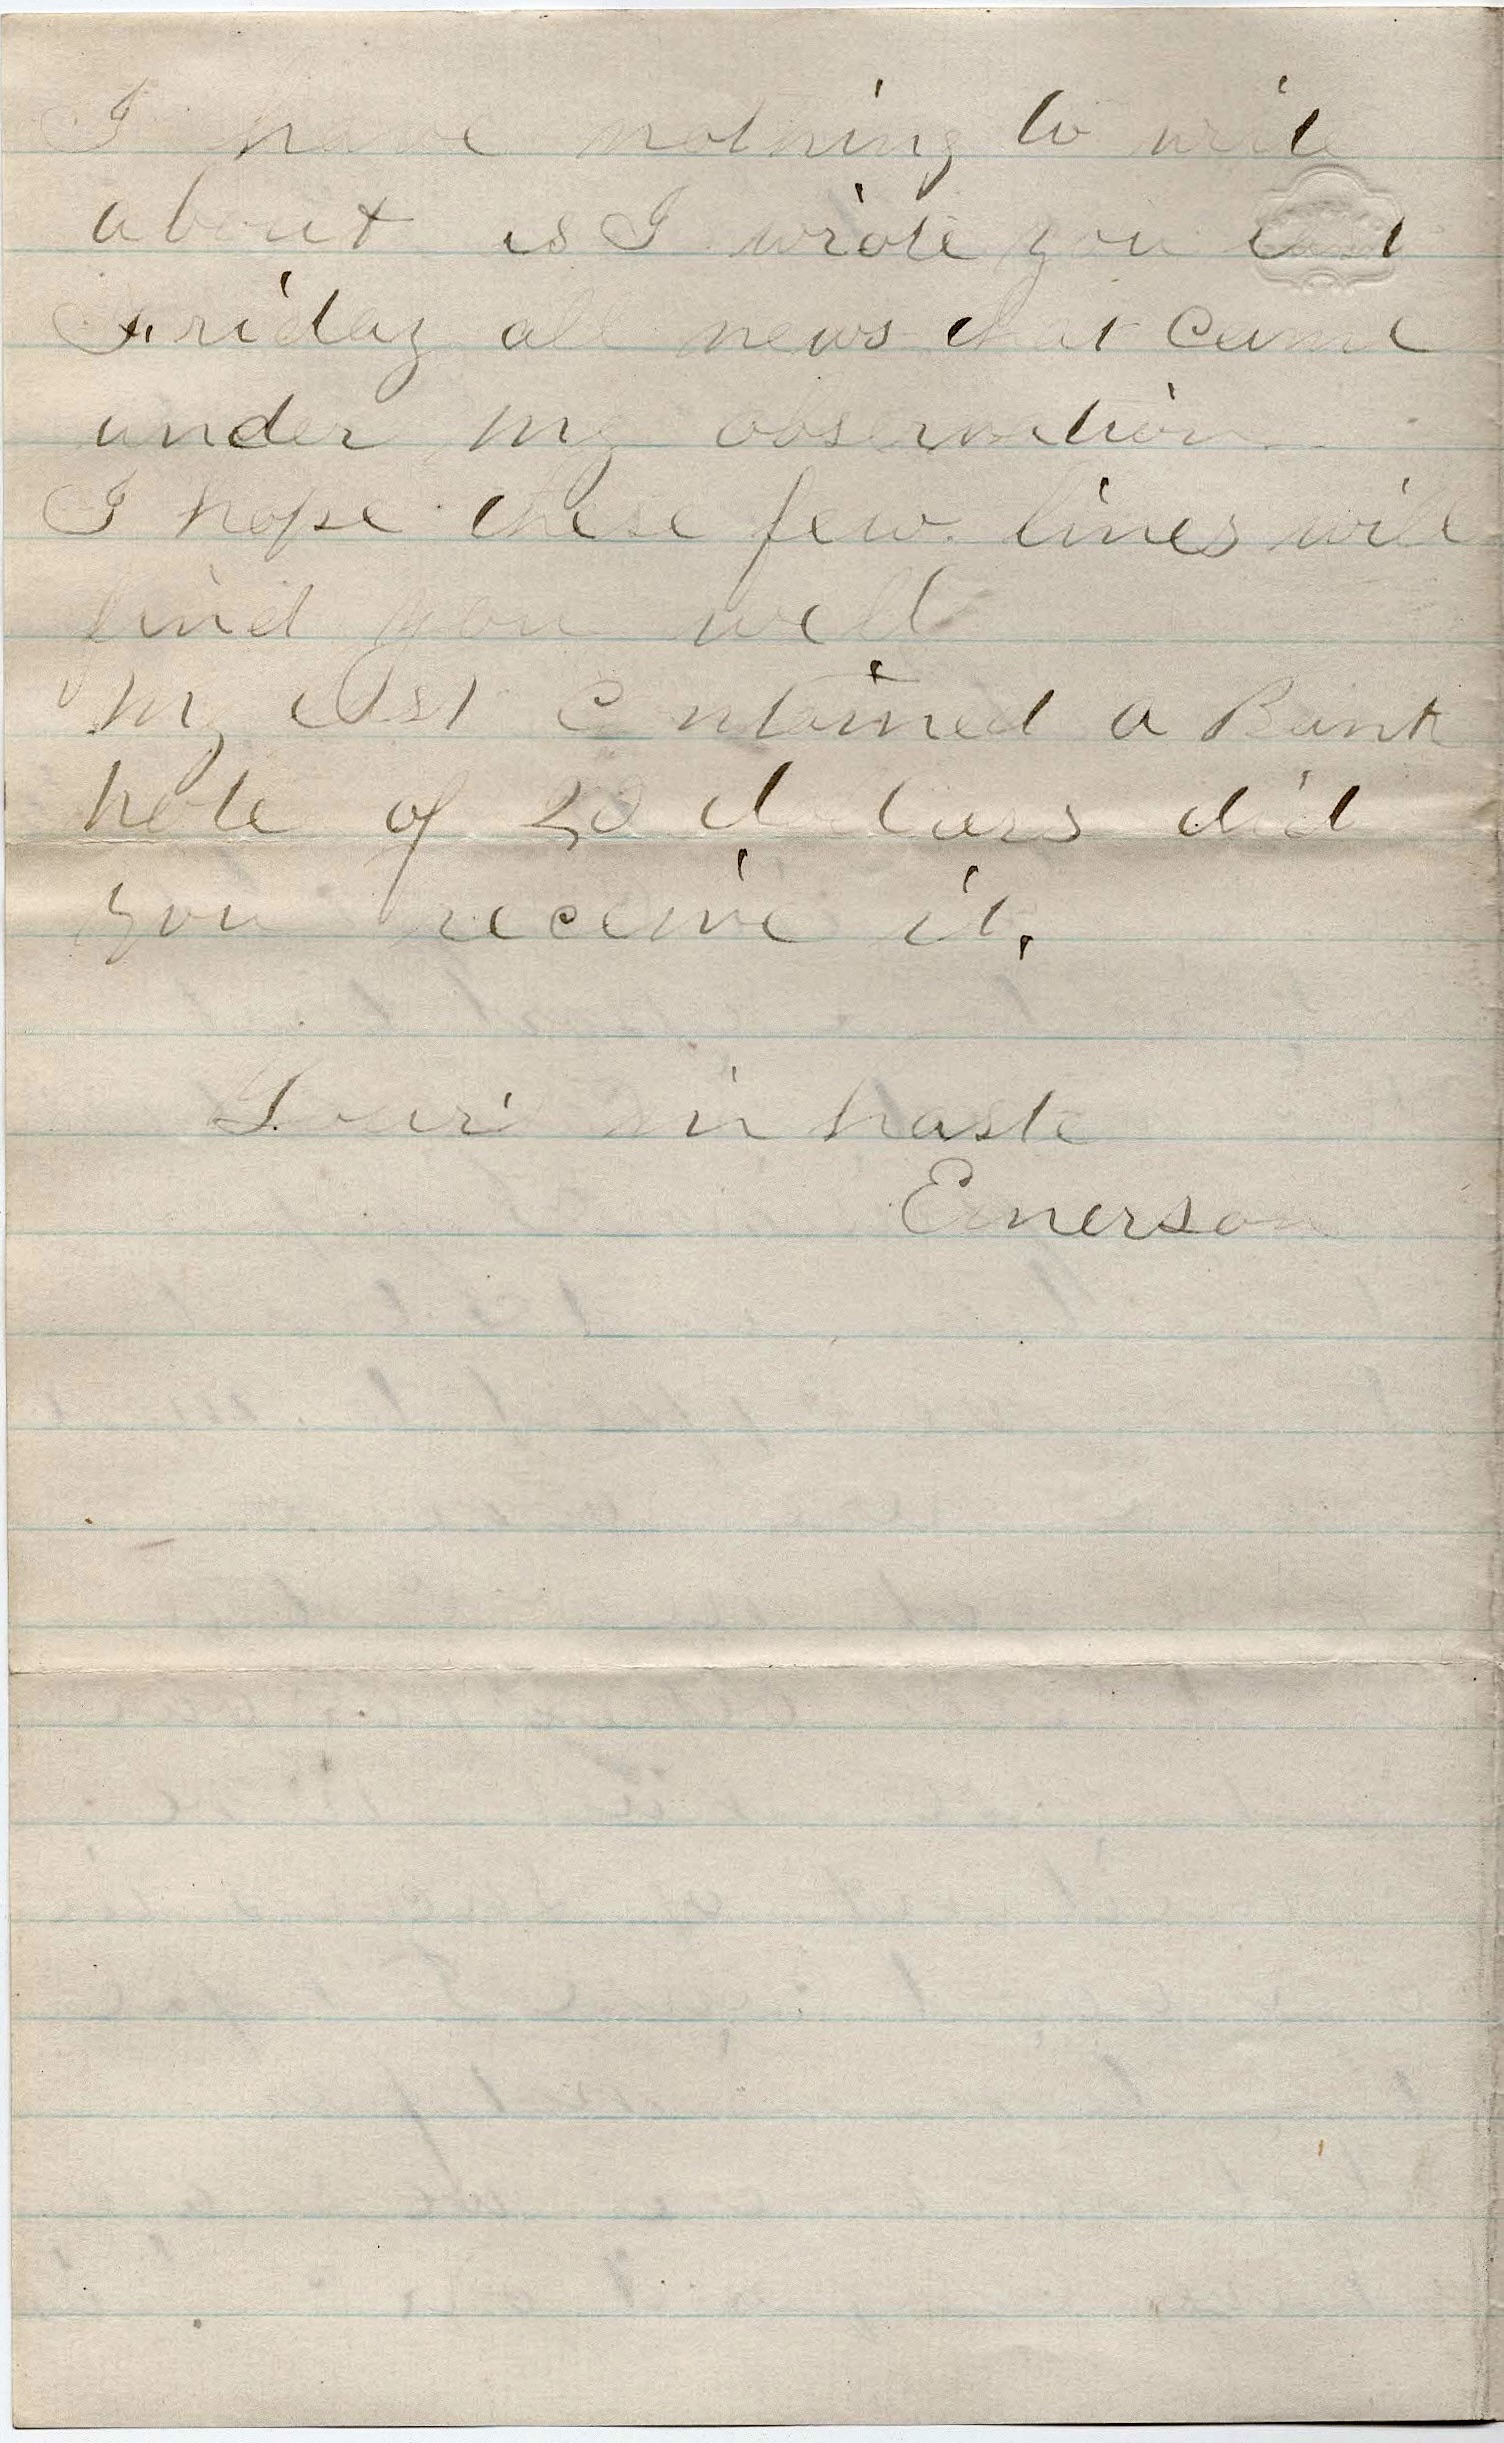 I have nothing to write
about as I wrote you last
Friday all news that came
under my observation
I hope these few lines will
find you well
My last contained a Bank
note of 20 dollars did
you receive it.
Yours in haste
Emerson